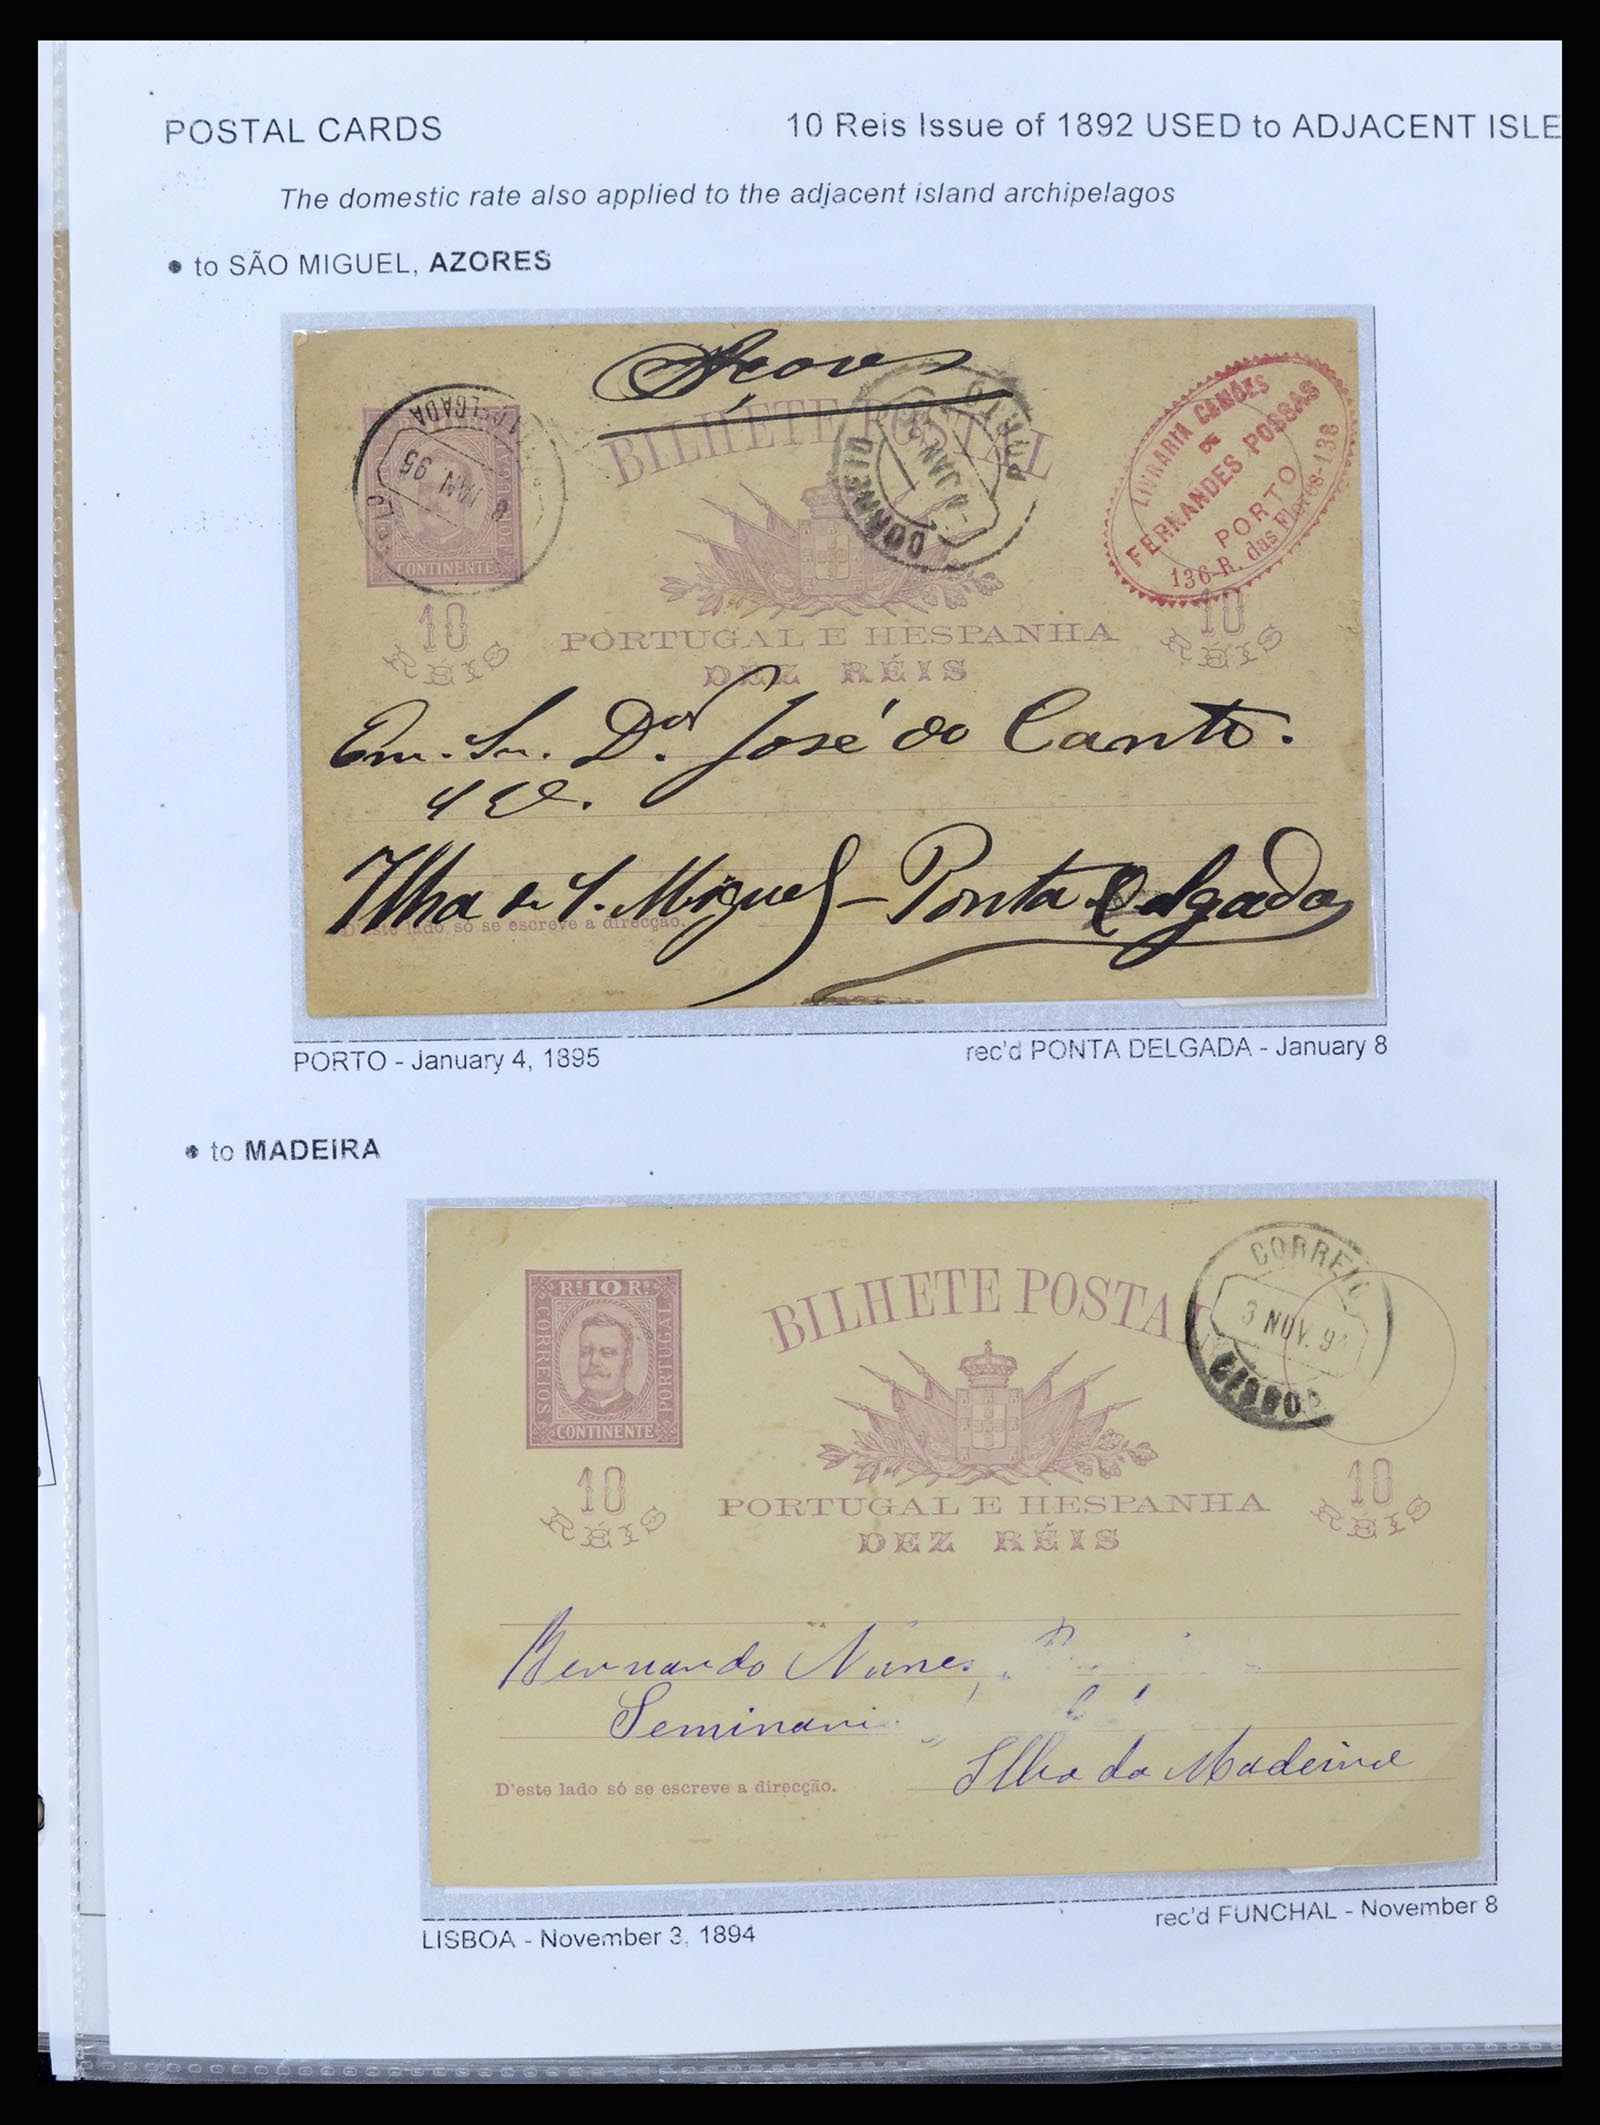 POSTAL CARDS
10 Reis Issue of 1892 USED to ADJACENT ISLE
The domestic rate also applied to the adjacent island archipelagos
• to SÃO MIGUEL, AZORES
Açores
BILHETE POSTAL
8 JAN. 95
CORREIO
PORTO
LIVRARIA CAMÕES
DE
FERNANDES POSSAS
PORTO
136-R. das Flores-138
CONTINENTE
10
RÉIS
PORTUGAL E HESPANHA
DEZ RÉIS
10
RÉIS
Exm. Sr. Dor José do Canto.
Ilha de S. Miguel – Ponta Delgada
D'este lado só se escreve a direcção.
PORTO - January 4, 1895
rec'd PONTA DELGADA - January 8
• to MADEIRA
BILHETE POSTAL
CORREIO
3 NOV. 94
LISBOA
Rs 10 Rs
CORREIOS
PORTUGAL
CONTINENTE
10
RÉIS
PORTUGAL E HESPANHA
DEZ RÉIS
10
RÉIS
Bernardo Nunes
Seminari
Ilha da Madeira
D'este lado só se escreve a direcção.
LISBOA - November 3, 1894
rec'd FUNCHAL - November 8